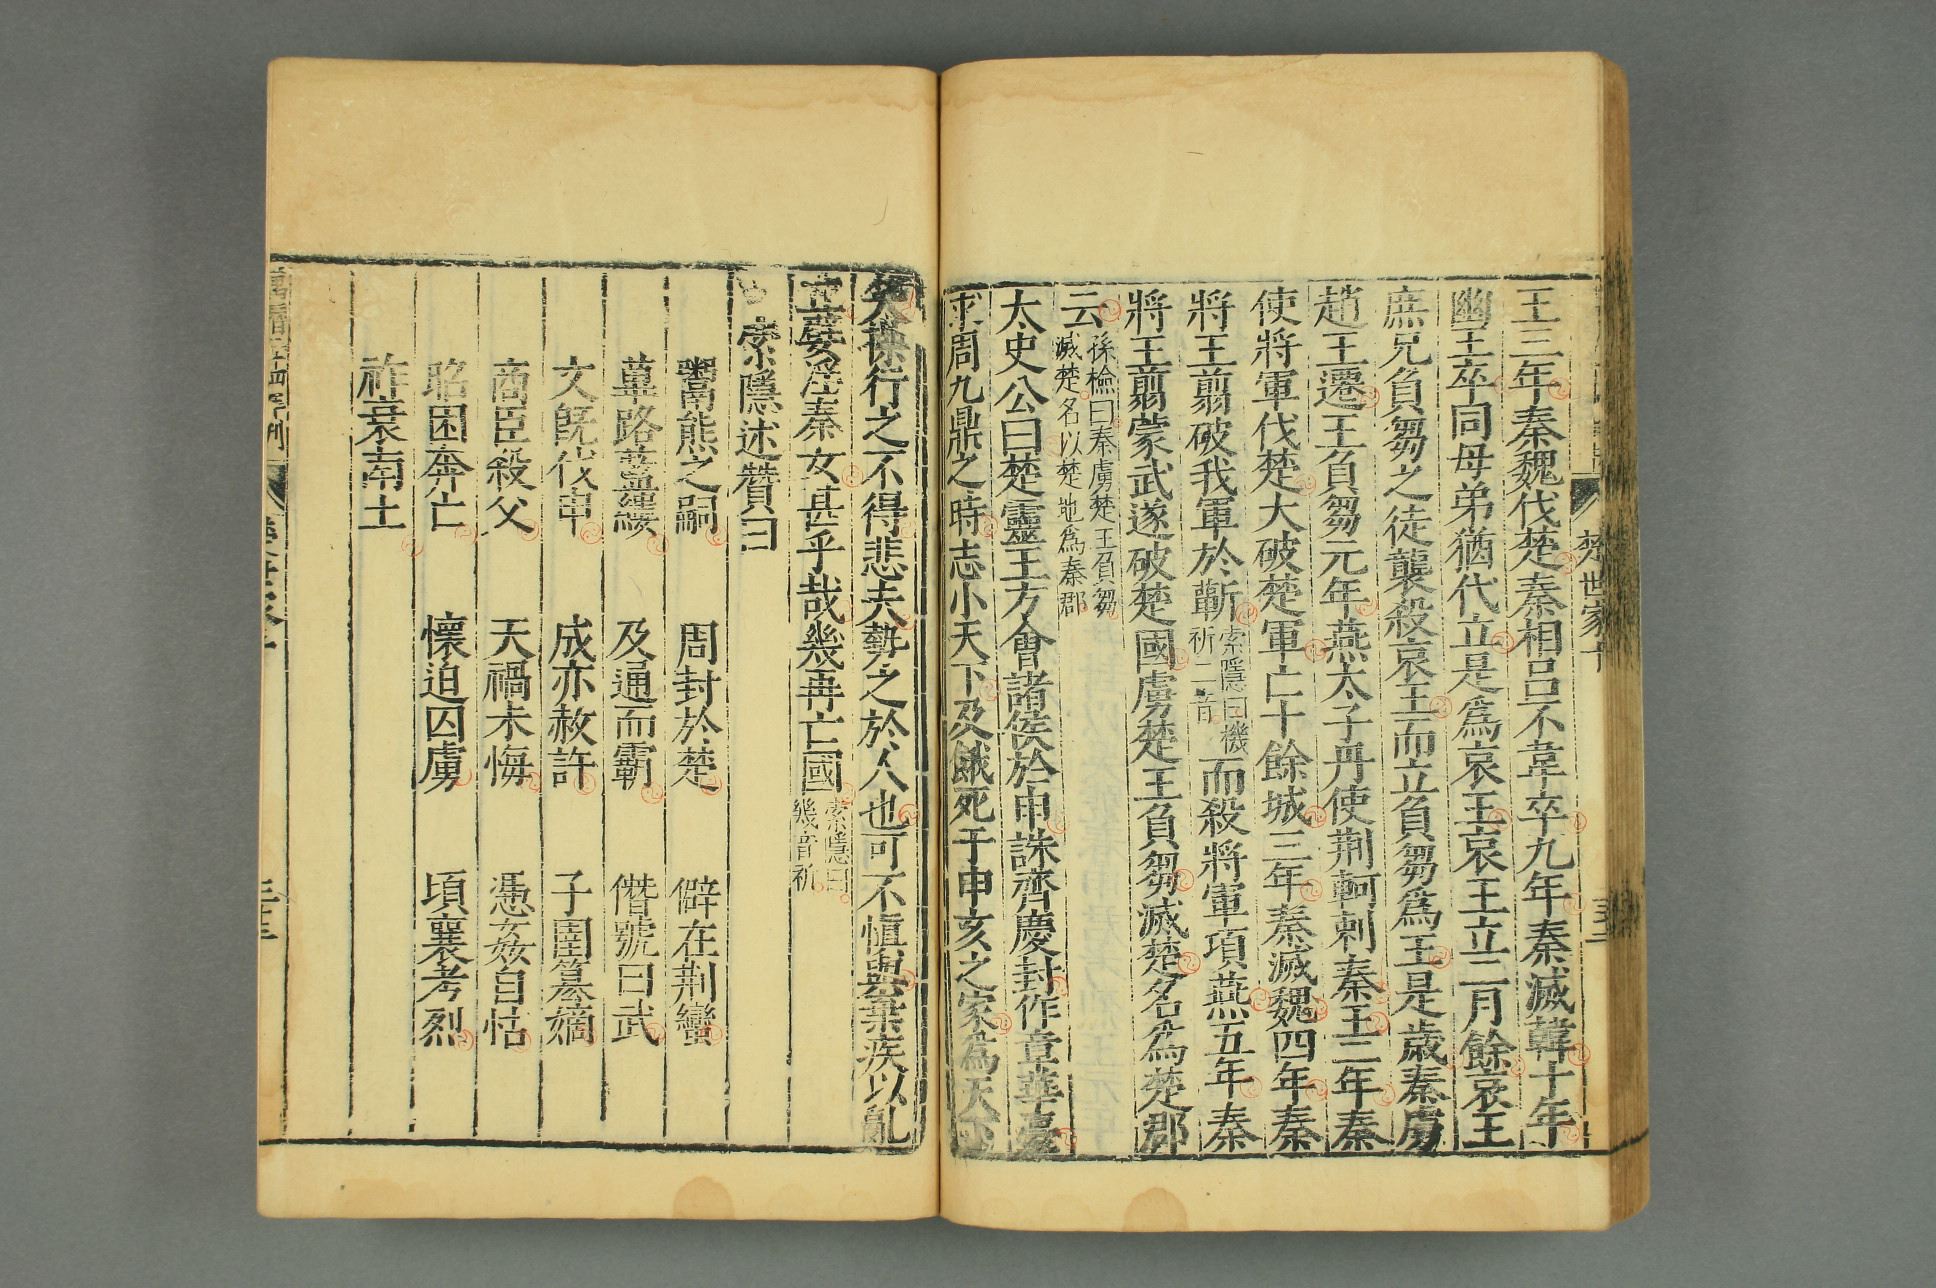 楚世家十
王三年秦魏伐楚秦相呂不韋卒九年秦滅韓十年
幽王卒同母弟猶代立是為哀王哀王立二月餘哀王
庶兄負芻之徒襲殺哀王而立負芻為王是歲秦虜
趙王遷王負芻元年燕太子丹使荆軻刺秦王二年秦
使將軍伐楚大破楚軍亡十餘城三年秦滅魏四年秦
將王翦破我軍於蘄
索隱曰機
祈二音
而殺將軍項燕五年秦
將王翦蒙武遂破楚國虜楚王負芻滅楚名為楚郡
云
孫檢曰秦虜楚王負芻
滅楚名以楚地為秦郡
太史公曰楚靈王方會諸侯於申誅齊慶封作章華臺
求周九鼎之時志小天下及餓死于申亥之家為天下
笑操行之不得悲夫勢之於人也可不慎與棄疾以亂
立嬖淫秦女甚乎哉幾再亡國
索隱曰
幾音祈
索隱述贊曰
鬻熊之嗣 周封於楚 僻在荆蠻
蓽路藍縷 及通而霸 僭號曰武
文既伐申 成亦赦許 子圉篡嫡
商臣殺父 天禍未悔 憑姦自怙
昭困奔亡 懷迫囚虜 頃襄考烈
祚衰南土